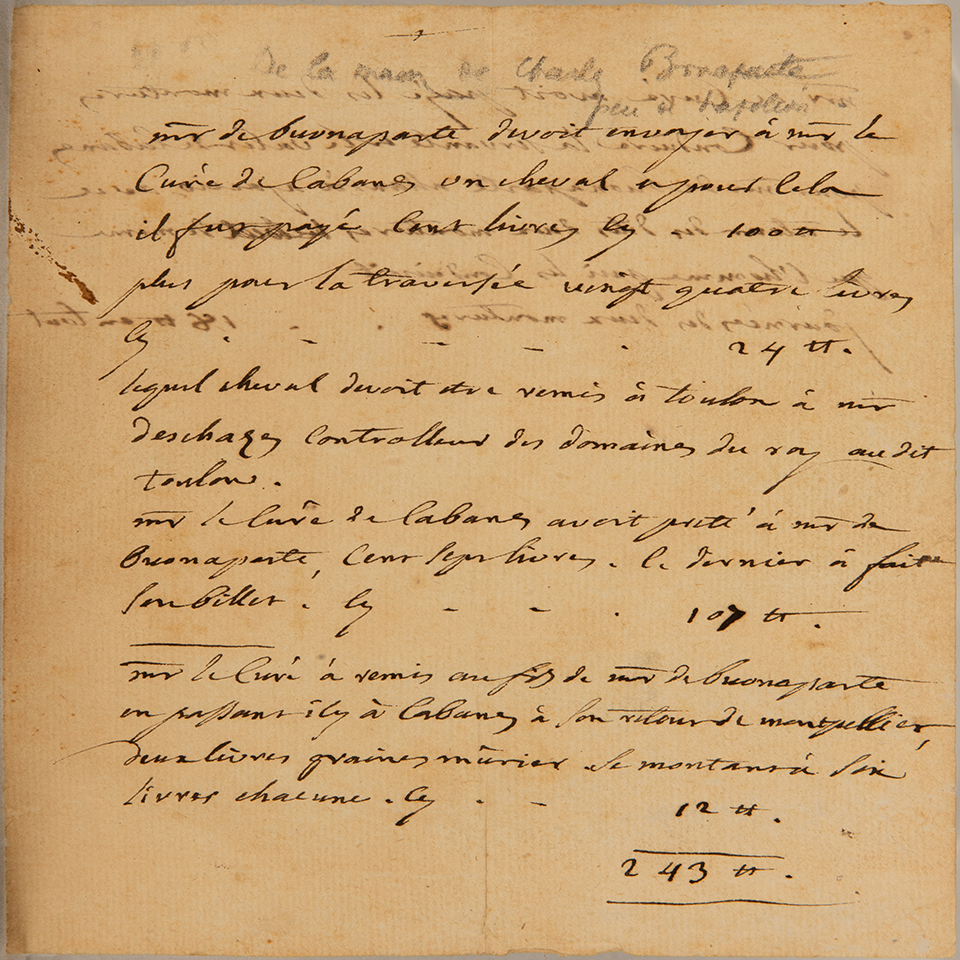 De la main de Charles Bonaparte
père de Napoléon
mr de buonaparte devoit envoyer à mr le
Curé de Cabanes un cheval et pour cela
il fut payé Cent livres Cy 100 ₶
plus pour la traversée vingt quatre livres
Cy . - - - . 24 ₶.
lequel cheval devoit etre remis à toulon à mr
deschazes Controlleur des domaines du roy au dit
toulon.
mr le Curé de Cabanes avoit pretté à mr de
Buonaparte, Cent sept livres. le dernier à fait
son billet. Cy - - . 107 ₶.
mr le Curé à remis au fils de mr de buonaparte
en passant icy à Cabanes à son retour de montpellier,
deux livres graines mûrier se montant à six
livres chacune. Cy . - 12 ₶.
243 ₶.